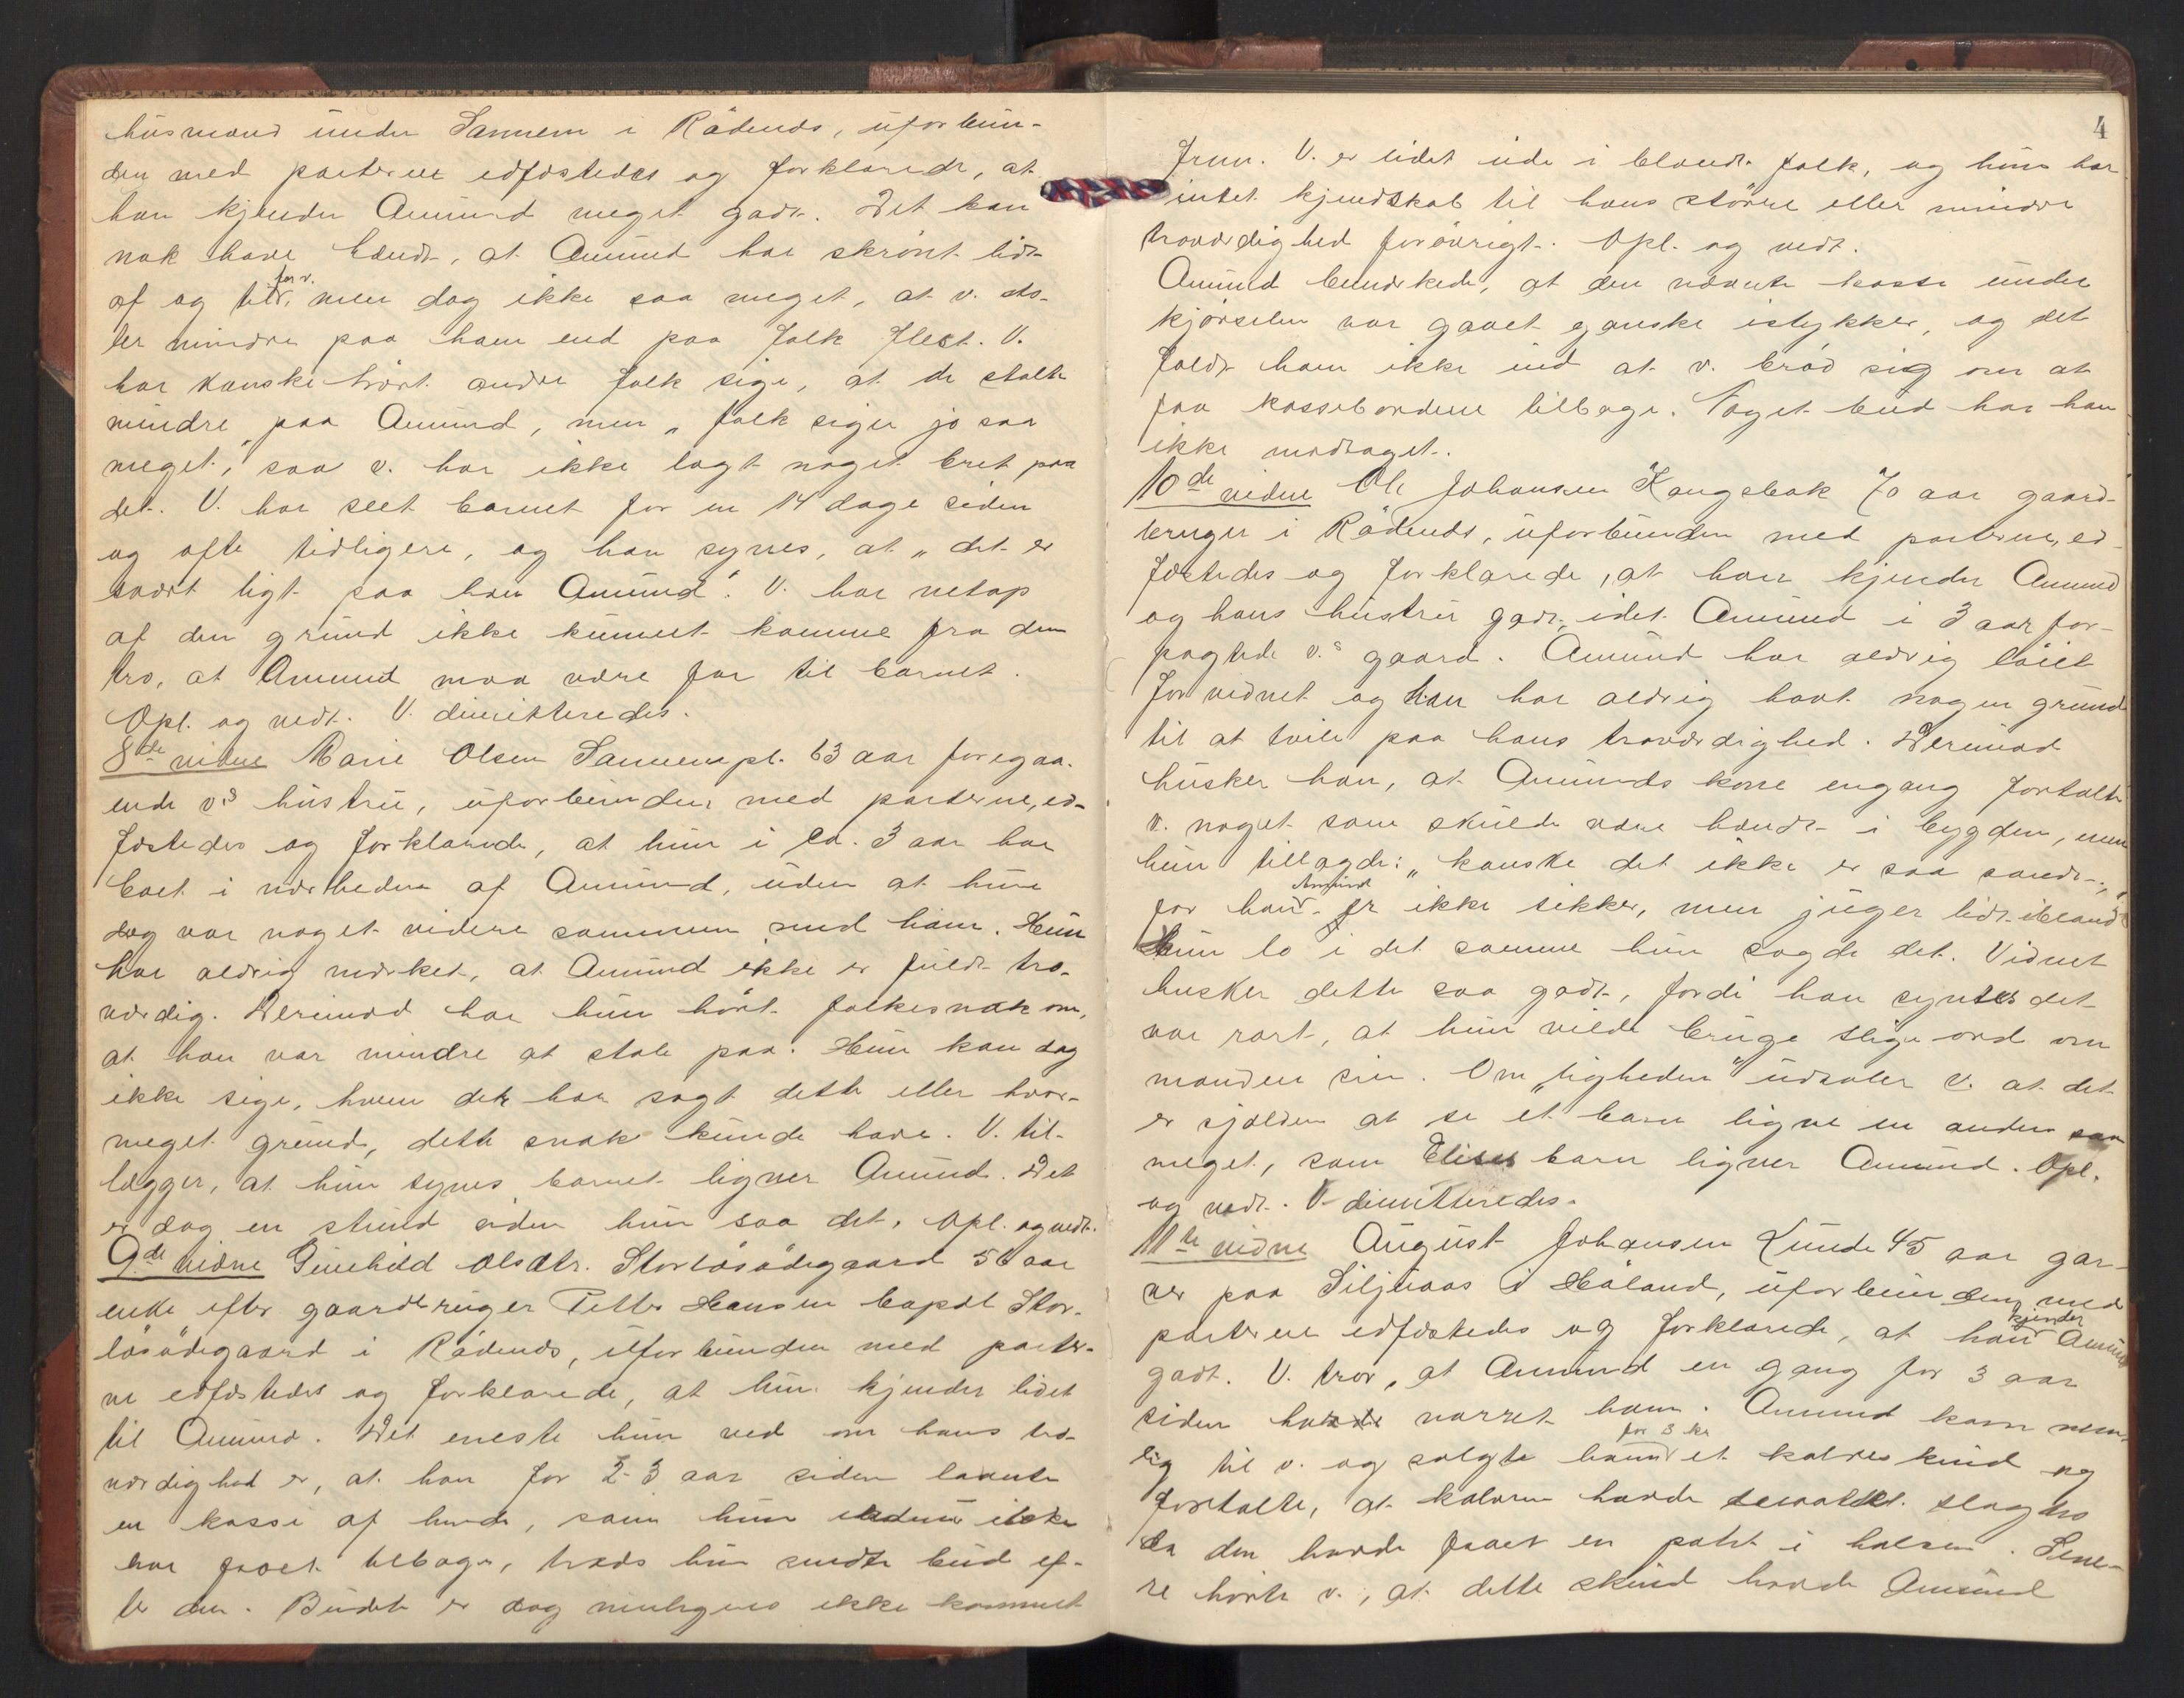 husmand under Sannem i Rødenes, uforbun-
den med parterne edfæstedes og forklarede, at
han kjender Amund meget godt. Det kan
nok have hændt, at Amund har skrønt lidt
for v.
af og til, men dog ikke saa meget, at v. sto-
ler mindre paa ham end paa folk flest. V.
har kanske hørt andre folk sige, at de stolte
mindre paa Amund, men „folk siger jo saa
meget," saa v. har ikke lagt noget bret paa
det. V. har seet barnet for en 14 dage siden
og ofte tidligere, og han synes, at „det er
svært ligt paa han Amund". V. har netop
af den grund ikke kunnet komme fra den
tro, at Amund maa være far til barnet.
Opl. og vedt. V. dimitteredes.
8de vidne Marie Olsen Sannempl. 63 aar foregaa-
ende v.s hustru, uforbunden med parterne, ed-
fæstedes og forklarede, at hun i ca. 3 aar har
boet i nærheden af Amund, uden at hun
dog var noget videre sammen med ham. Hun
har aldrig mærket, at Amund ikke er fuldt tro-
værdig. Derimod har hun hørt folkesnak om,
at han var mindre at stole paa. Hun kan dog
ikke sige, hvem der har sagt dette eller hvor-
meget grund, dette snak kunde have. V. til-
lægger, at hun synes barnet ligner Amund. Det
er dog en stund siden hun saa det. Opl. og vedt.
9de vidne Gunhild Olsdtr. Storløsødegaard 56 aar
enke efter gaardbruger Petter Hansen bopæl Stor-
løsødegaard i Rødenes, uforbunden med parter-
ne edfæstedes og forklarede, at hun kjender lidet
til Amund. Det eneste hun ved om hans tro-
værdighed er, at han for 2-3 aar siden laante
en kasse af hende, som hun endnu ikke
har faaet tilbage, trods hun sendte bud ef-
ter den. Budet er dog muligens ikke kommet
4
frem. V. er lidet ude i blandt folk, og hun har
intet kjendskab til hans større eller mindre
troværdighed forøvrigt. Opl. og vedt.
Amund bemærkede, at den nævnte kasse under
kjørselen var gaaet ganske istykker, og det
faldt ham ikke ind at v. brød sig om at
faa kassebordene tilbage. Noget bud har han
ikke modtaget.
10de vidne Ole Johansen Kangsbak 70 aar gaard-
bruger i Rødenes, uforbunden med parterne, ed-
fæstedes og forklarede, at han kjender Amund
og hans hustru godt, idet Amund i 3 aar for-
pagtede v.s gaard. Amund har aldrig løiet
for vidnet og han har aldrig havt nogen grund
til at tvile paa hans troværdighed. Derimod
husker han, at Amunds kone engang fortalte
v. noget som skulde være hændt i bygden, men
hun tillagde: „kanske det ikke er saa sandt,"
Amund
for han er ikke sikker, men juger lidt iblandt
Hun lo i det samme hun sagde det. Vidnet
husker dette saa godt, fordi han syntes det
var rart, at hun vilde bruge slige ord om
manden sin. Om „ligheden" udtaler v. at det
er sjelden at se et barn ligne en anden saa
meget, som Elises barn ligner Amund. Opl.
og vedt. V. dimitteredes.
11te vidne August Johansen Lunde 45 aar gar-
ver paa Siljuaas i Høland, uforbunden med
kjender
parterne edfæstedes og forklarede, at han Amund
godt. V. tror, at Amund en gang for 3 aar
siden havde narret ham. Amund kom nem-
for 3 kr
lig til v. og solgte ham et kalveskind og
fortalte, at kalven havde slagtes
da den havde faaet en potet i halsen. Sene-
re hørte v., at dette skind havde Amund